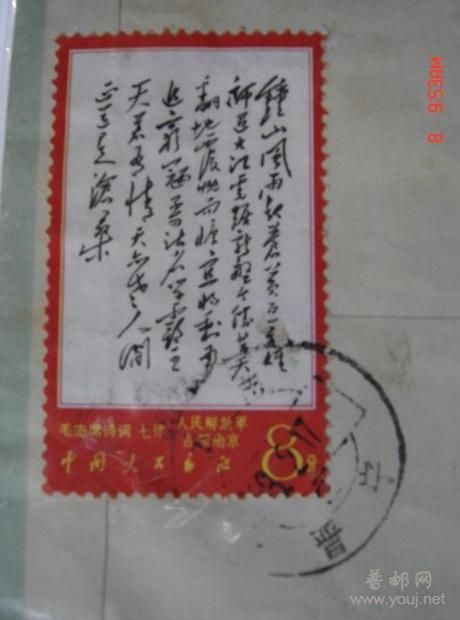 鐘山風雨起蒼黃百万雄
師过大江虎踞龍盤今勝昔天
翻地覆慨而慷宜将剩勇
追窮寇不可沽名学霸王
天若有情天亦老人间
正道是滄桑
毛主席诗词 七律 人民解放軍
占领南京
中国人民邮政 8分
8 9:53AM
普邮网
www.youj.net